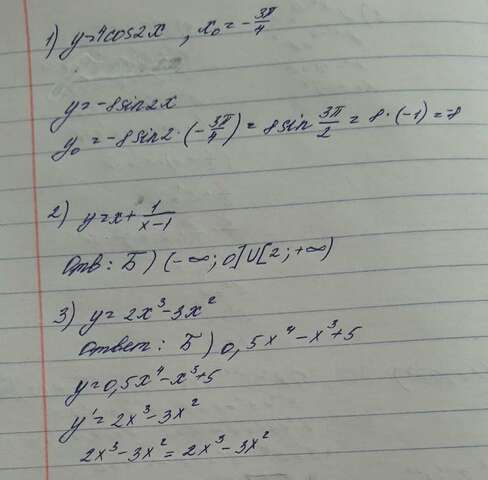 1) y=4cos2x , x₀ = -3π/4
y = -8sin2x
y₀ = -8sin2·(-3π/4) = 8sin 3π/2 = 8·(-1) = -8
2) y=x+ 1/(x-1)
Отв: Б) (-∞; 0]∪[2; +∞)
3) y = 2x³-3x²
Ответ: Б) 0,5x⁴-x³+5
y=0,5x⁴-x³+5
y'= 2x³-3x²
2x³-3x² = 2x³-3x²